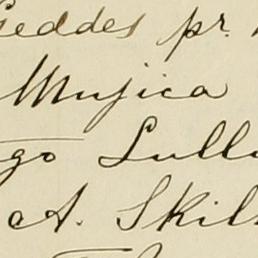 Geddes pr.
Mujica
go Lull
A. Skil